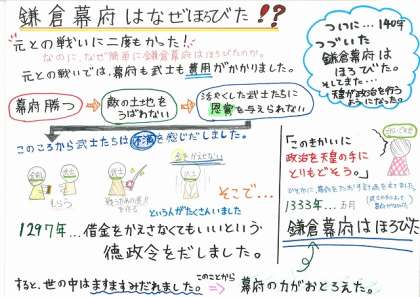 鎌倉幕府はなぜほろびた!?
元との戦いに二度もかった!
なのに、なぜ簡単に鎌倉幕府はほろびたのか。
元との戦いでは、幕府も武士も費用がかかりました。
幕府勝つ
敵の土地をうばわない
活やくした武士たちに恩賞を与えられない
このころから武士たちは不満を感じだしました。
もらう
お金かえせない
そこで…
という人がたくさんいました
1297年…借金をかえさなくてもいいという
徳政令をだしました。
すると、世の中はますますみだれました。
このことから
幕府の力がおとろえた。
ついに…140年
つづいた
鎌倉幕府は
ほろびた。
そしてまた…
天皇が政治を行う
ようになった。
「このきかいに
政治を天皇の手に
とりもどそう。」
1333年…五月
鎌倉幕府はほろびた